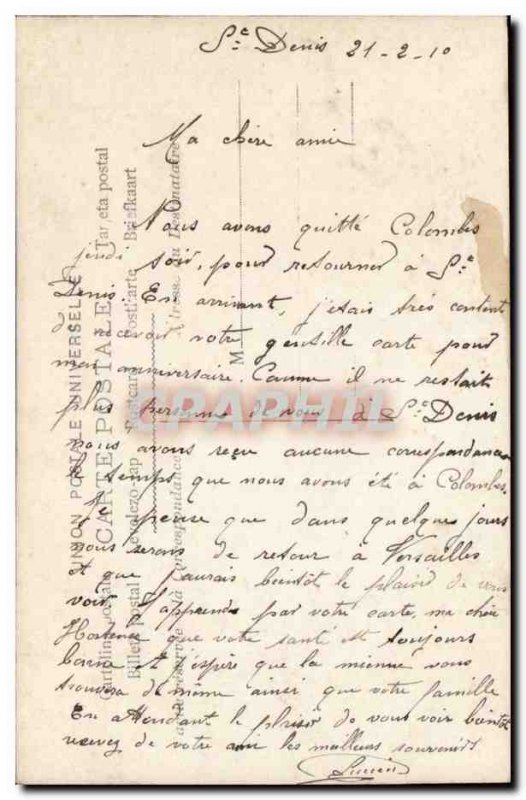 St Denis 21-2-10
Ma chère amie
Nous avons quitté Colombes
jeudi soir, pour retourner à St
Denis. En arrivant, j'étais très content
de recevoir votre gentille carte pour
mon anniversaire. Comme il ne restait
plus personne de nous à St Denis
nous avons reçu aucune correspondance
le temps que nous avons été à Colombes
Je pense que dans quelques jours
nous serons de retour à Versailles
et que j'aurais bientôt le plaisir de vous
voir. J'apprends par votre carte, ma chère
Hortense que votre santé est toujours
bonne et j'espère que la mienne vous
trouvera de même ainsi que votre famille
En attendant le plaisir de vous voir bientôt
recevez de votre ami les meilleurs souvenirs
Lucien
UNION POSTALE UNIVERSELLE
CARTE POSTALE
Tarjeta postal
Postcard
Postkarte
Briefkaart
Cartolina postale
Billet postal
Levelező-Lap
M
CPAPHIL